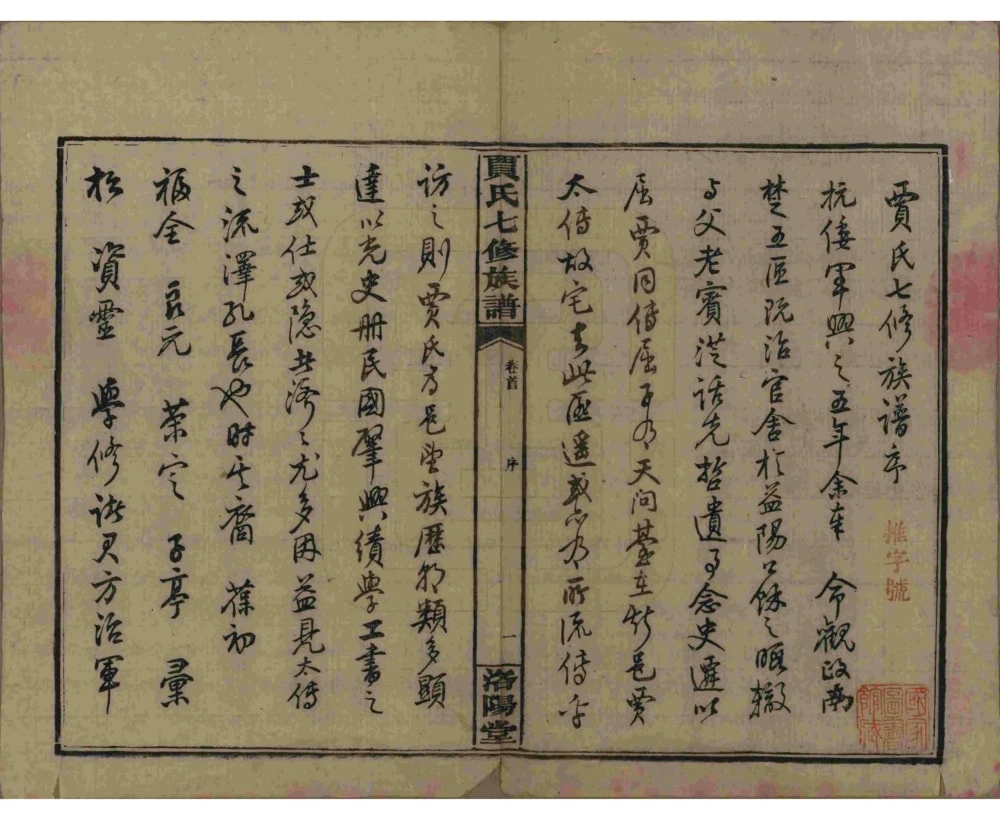 賈氏七修族譜序
推字號
抗倭軍興之五年余奉 命觀政兩
楚五區阮治官舍於益陽公餘之暇輙
与父老賓從話先哲遺事念史遷以
屈賈同傳屈子有天問臺在斯邑賈
太傅故宅去此匪遥或亦有所流傳乎
賈氏七修族譜
卷首
序
一
洛陽堂
訪之則賈氏方邑望族歷朝類多顯
達以光史册民國肇興績學工書之
士或仕或隱濟之尤多因益見太傅
之流澤孔長也時其裔 葆初
福全 元 榮定 子亭 彙
松 資靈 學修諸君方治軍